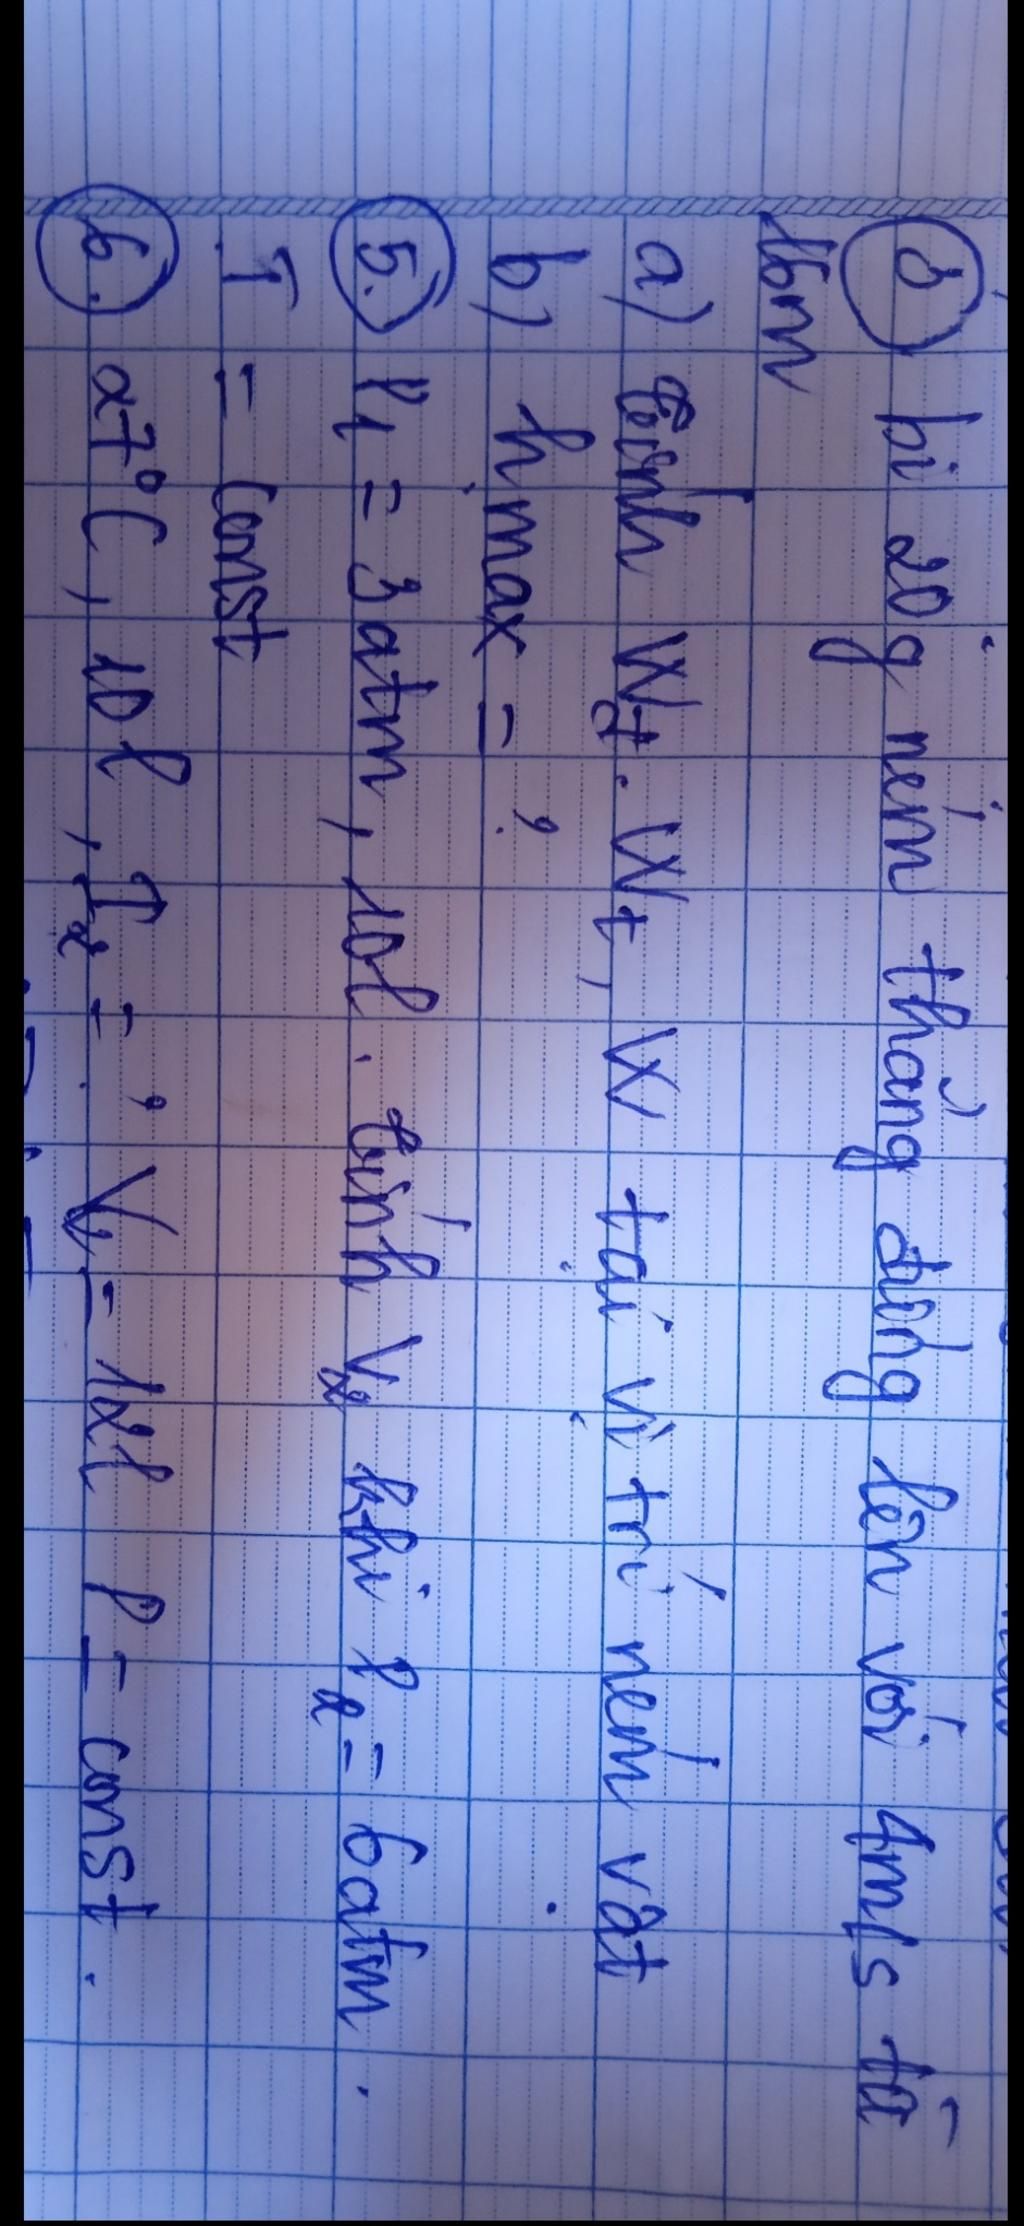 ③ bi 20g ném thẳng đứng lên với 4m/s từ
1,6m
a) tính Wđ. Wt, W tại vị trí ném vật
b) h max = ?
⑤. P1 = 3 atm, 10l. tính V2 khi P2 = 6atm.
T = const
⑥. 27°C, 10l, T2 = ? V2 = 12l P = const.